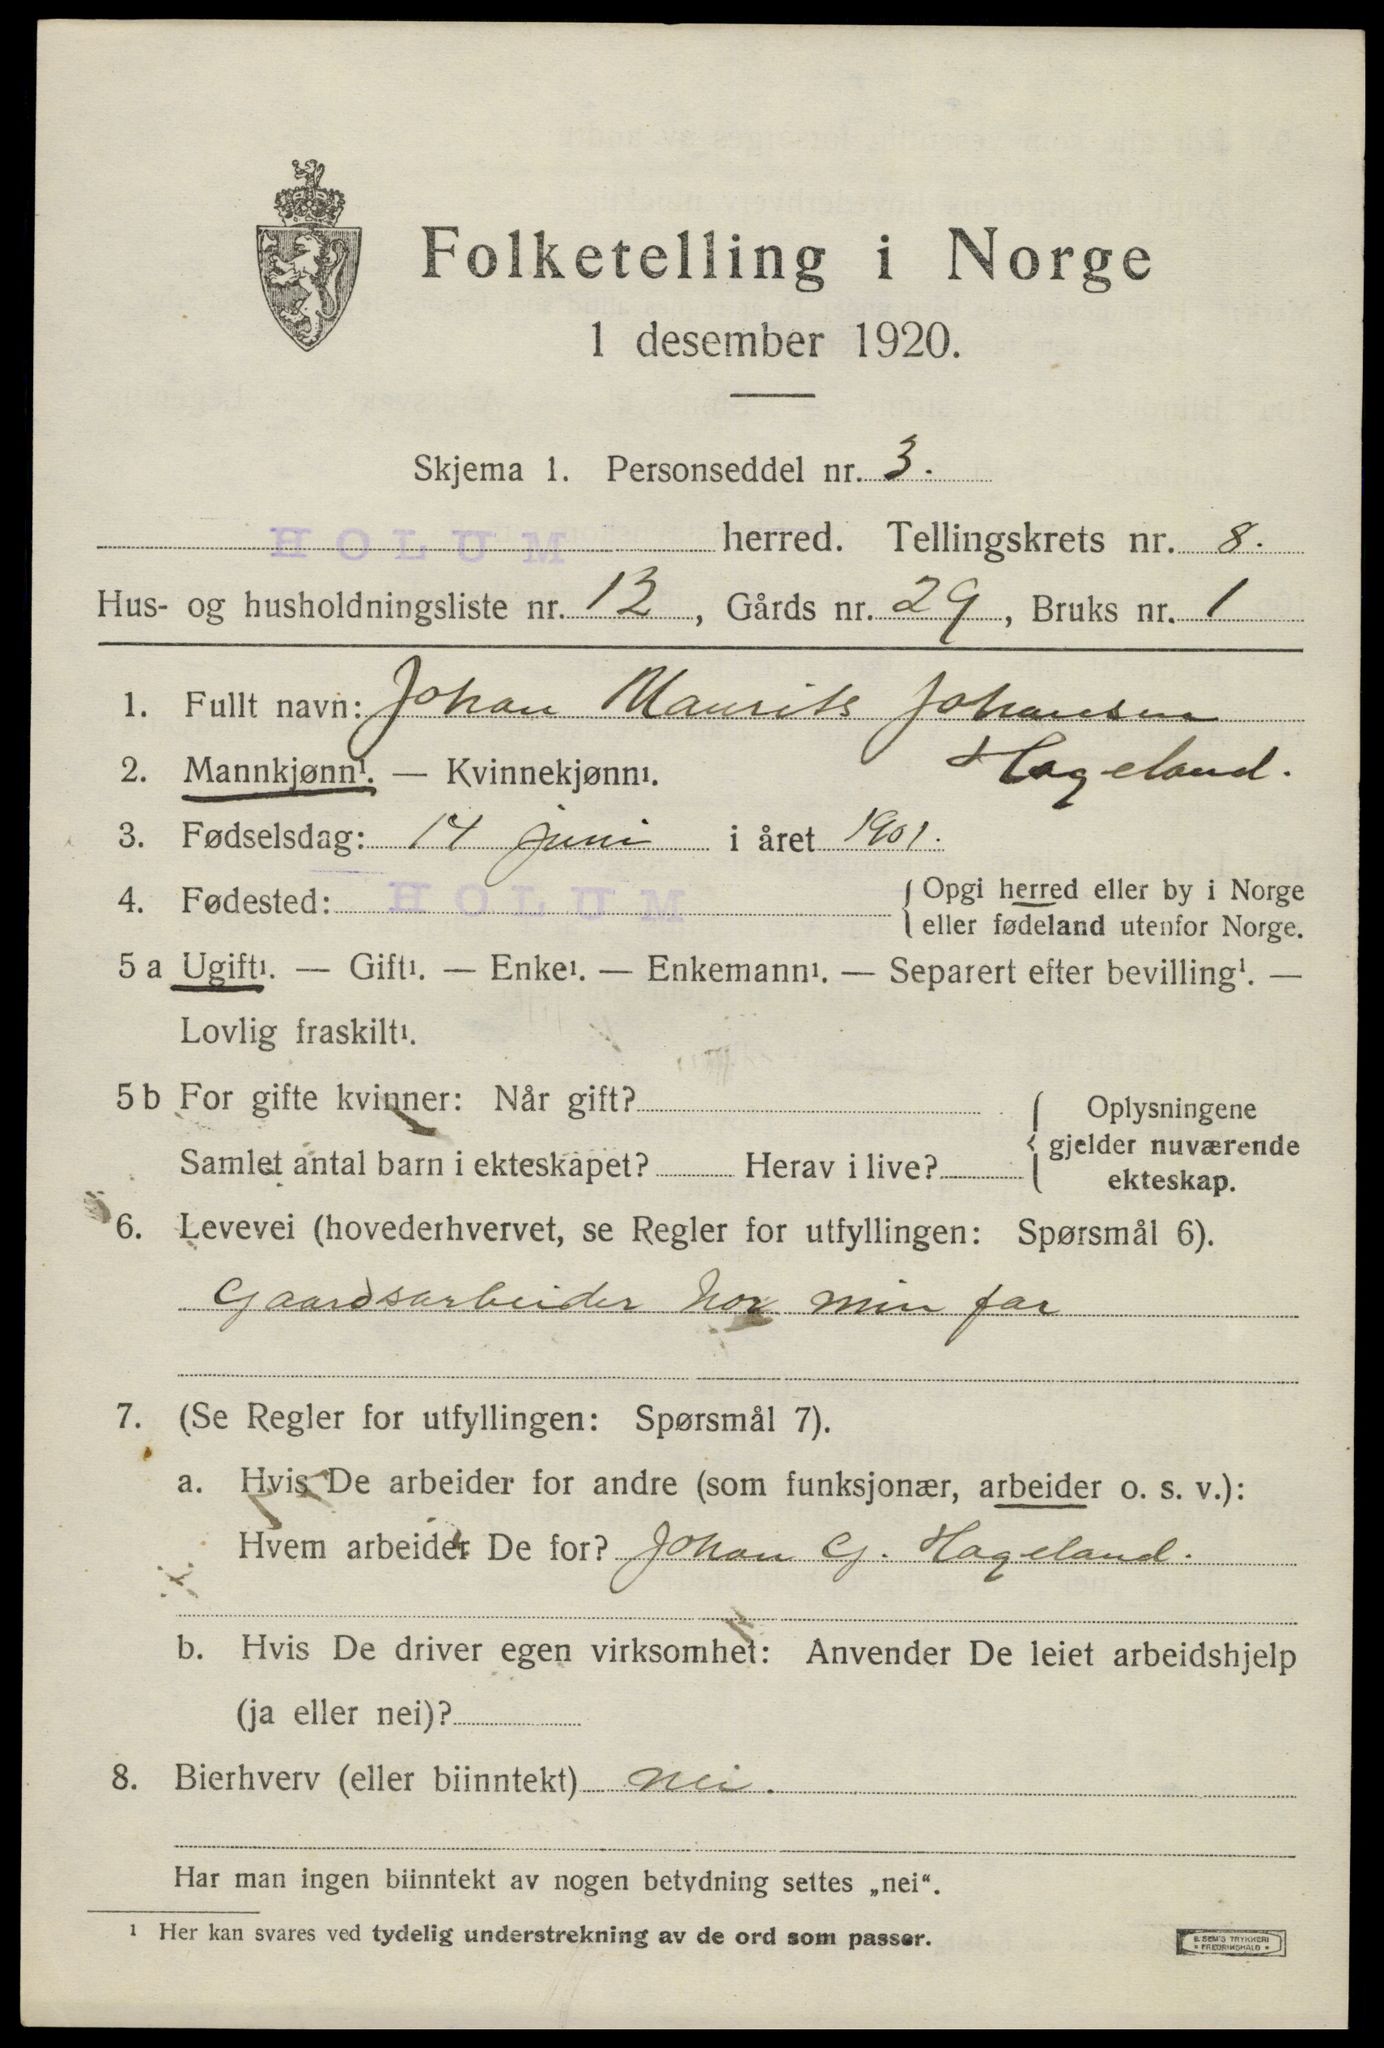 Folketelling i Norge
1 desember 1920.
Skjema 1. Personseddel nr. 3.
HOLUM herred. Tellingskrets nr. 8.
Hus- og husholdningsliste nr. 13, Gårds nr. 29, Bruks nr. 1
1. Fullt navn: Johan Maurits Johansen
2. Mannkjønn¹. — Kvinnekjønn¹. Hageland.
3. Fødselsdag: 14 juni i året 1901.
4. Fødested: HOLUM { Opgi herred eller by i Norge
eller fødeland utenfor Norge.
5 a Ugift¹. — Gift¹. — Enke¹. — Enkemann¹. — Separert efter bevilling¹. —
Lovlig fraskilt¹.
5 b For gifte kvinner: Når gift?
Oplysningene
gjelder nuværende
Samlet antal barn i ekteskapet? Herav i live?
ekteskap.
6. Levevei (hovederhvervet, se Regler for utfyllingen: Spørsmål 6).
Gaardsarbeider hos min far
7. (Se Regler for utfyllingen: Spørsmål 7).
a. Hvis De arbeider for andre (som funksjonær, arbeider o. s. v.):
Hvem arbeider De for? Johan G. Hageland.
b. Hvis De driver egen virksomhet: Anvender De leiet arbeidshjelp
(ja eller nei)?
8. Bierhverv (eller biinntekt) nei.
Har man ingen biinntekt av nogen betydning settes „nei“.
¹ Her kan svares ved tydelig understrekning av de ord som passer.
E. SEM'S TRYKKERI
* FREDRIKSHALD *